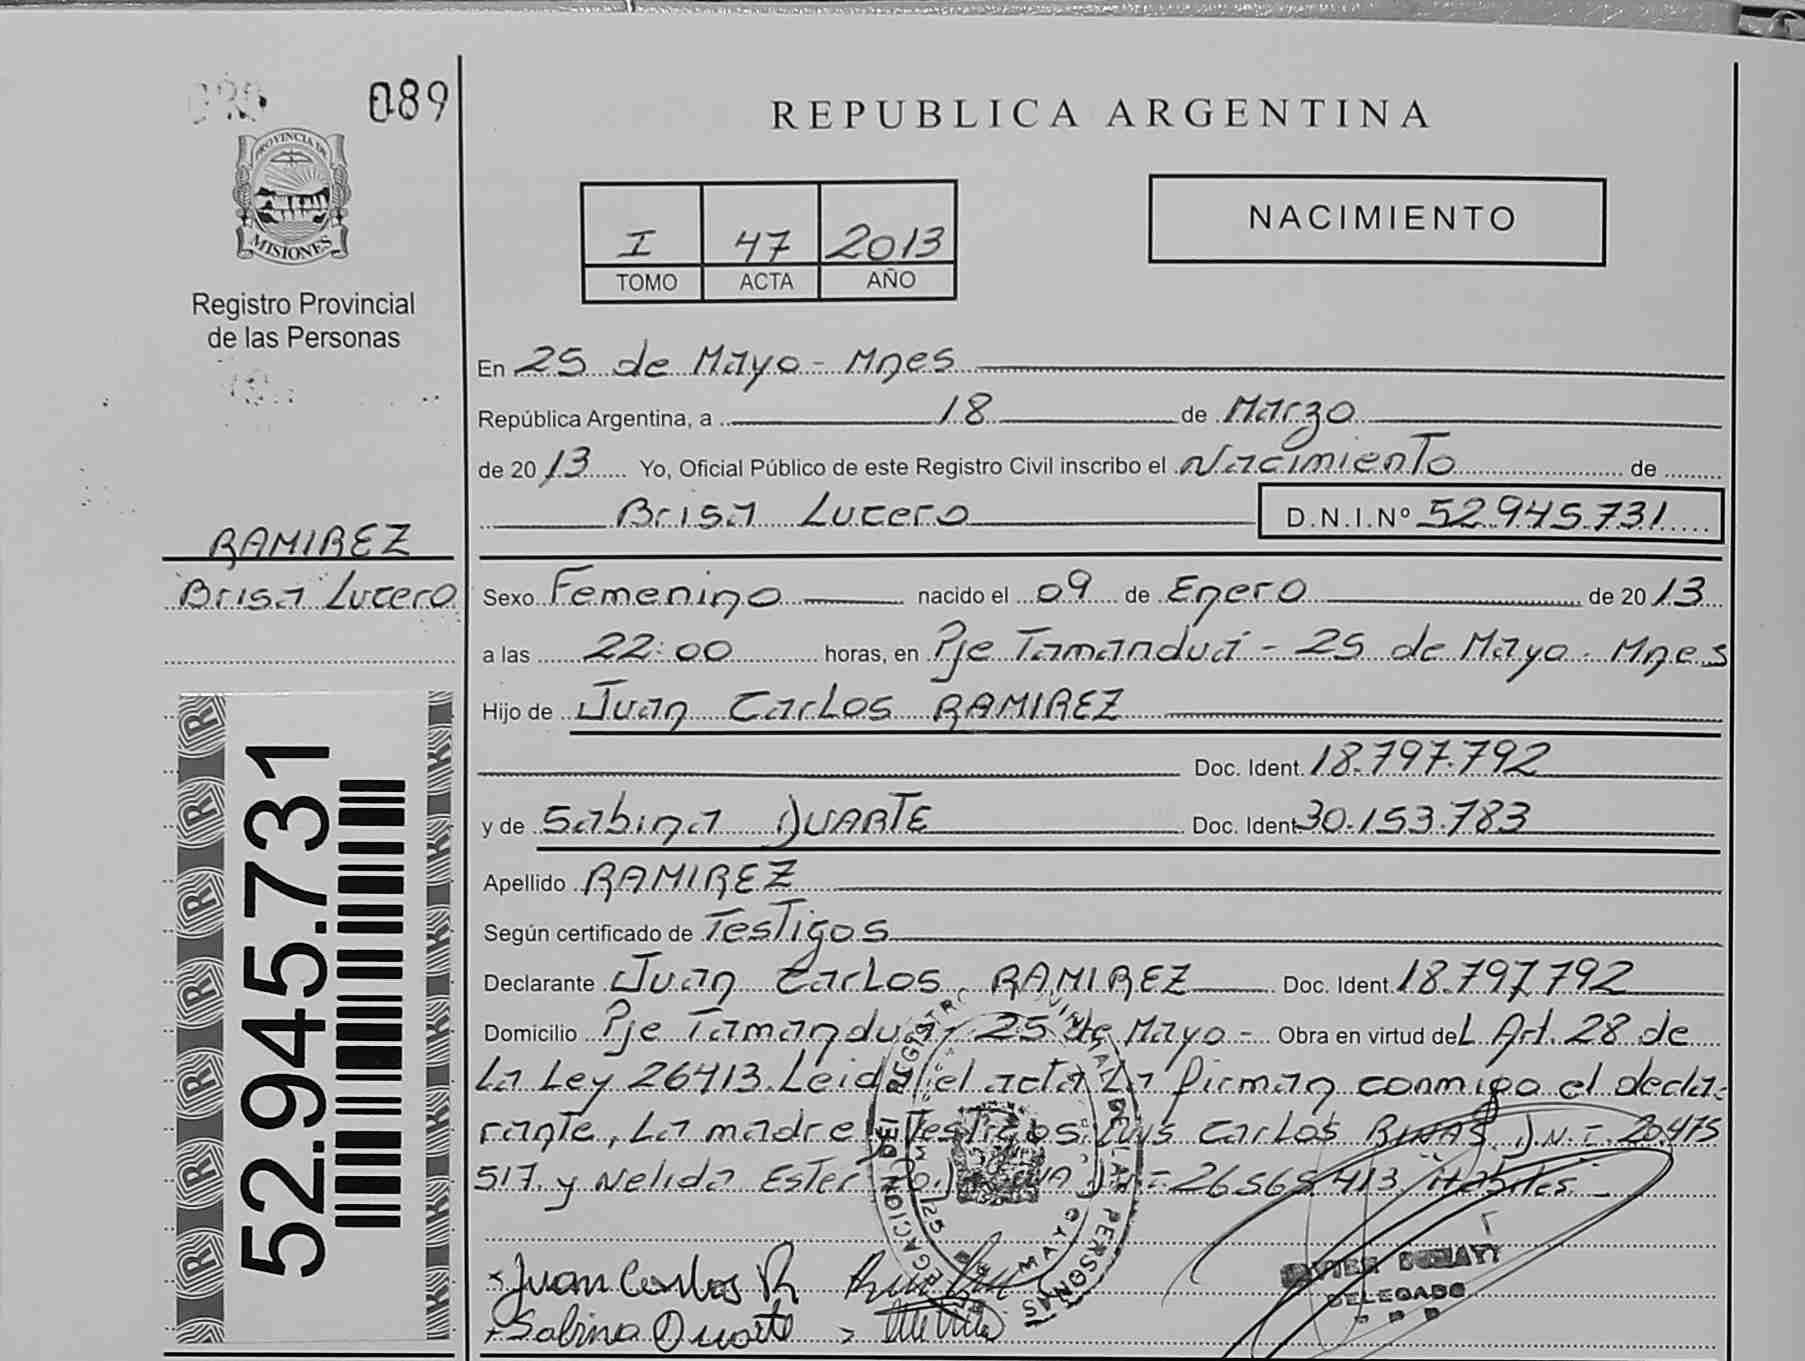 089
PROVINCIA DE
MISIONES
Registro Provincial
de las Personas
RAMIREZ
Brisa Lucero
52.945.731
REPUBLICA ARGENTINA
I 47 2013
TOMO ACTA AÑO
NACIMIENTO
En 25 de Mayo - Mnes
República Argentina, a 18 de Marzo
de 2013 Yo, Oficial Público de este Registro Civil inscribo el Nacimiento de
Brisa Lucero D.N.I.Nº 52.945.731
Sexo Femenino nacido el 09 de Enero de 2013
a las 22:00 horas, en Pje Tamanduá - 25 de Mayo - Mnes
Hijo de Juan Carlos RAMIREZ
Doc. Ident. 18.797.792
y de Sabina DUARTE Doc. Ident 30.153.783
Apellido RAMIREZ
Según certificado de Testigos
Declarante Juan Carlos RAMIREZ Doc. Ident. 18.797.792
Domicilio Pje Tamanduá - 25 de Mayo - Obra en virtud del Art. 28 de
La Ley 26413. Leida el acta La firman conmigo el decla-
rante, La madre y Testigos Luis Carlos D.N.I. 20.475
517 y Nelida Ester Habiles
Juan Carlos R
Sabina Duarte
DELEGADO